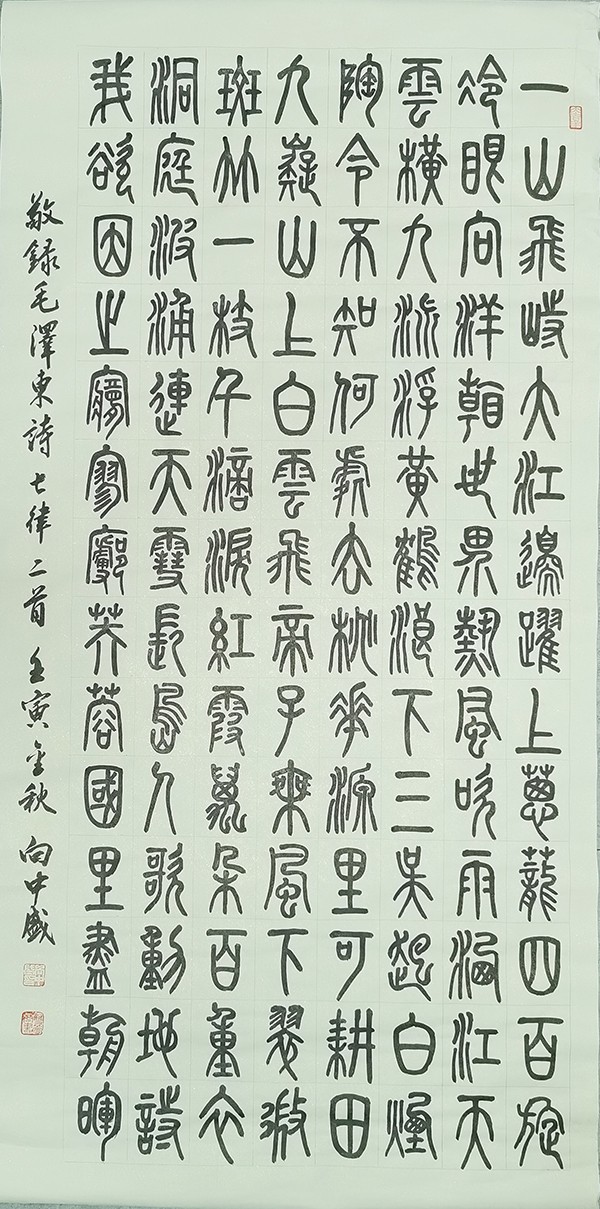 一山飛峙大江邊躍上蔥蘢四百旋
冷眼向洋看世界熱風吹雨洒江天
雲橫九派浮黃鶴浪下三吳起白煙
陶令不知何處去桃花源里可耕田
九嶷山上白雲飛帝子乘風下翠微
斑竹一枝千滴淚紅霞萬朵百重衣
洞庭波涌連天雪長島人歌動地詩
我欲因之夢寥廓芙蓉國里盡朝暉
敬錄毛澤東詩七律二首 壬寅金秋 向中盛